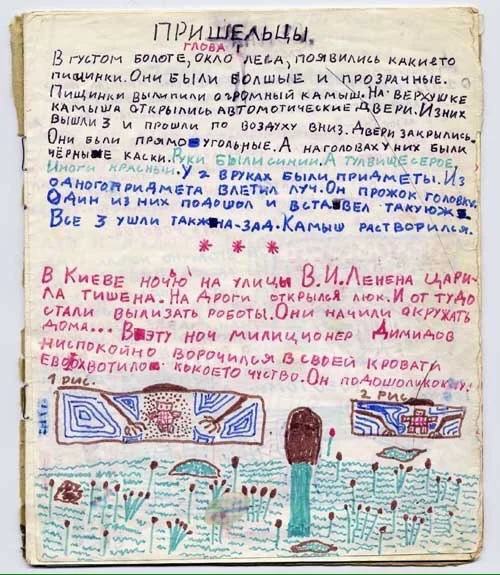 ПРИШЕЛЬЦЫ.
ГЛОВА 1
В ГУСТОМ БОЛОТЕ, ОКЛО ЛЕСА, ПОЯВИЛИСЬ КАКИЕТО
ПИЩИНКИ. ОНИ БЫЛИ БОЛШЫЕ И ПРОЗРАЧНЫЕ.
ПИЩИНКИ ВЫЛИПИЛИ ОГРОМНЫЙ КАМЫШ. НА ВЕРХУШКЕ
КАМЫША ОТКРЫЛИСЬ АВТОМОТИЧЕСКИЕ ДВЕРИ. ИЗ НИХ
ВЫШЛИ 3 И ПРОШЛИ ПО ВОЗДУХУ ВНИЗ. ДВЕРИ ЗАКРЫЛИСЬ.
ОНИ БЫЛИ ПРЯМОУГОЛЬНЫЕ. А НА ГОЛОВАХ У НИХ БЫЛИ
ЧЁРНЫЕ КАСКИ. РУКИ БЫЛИ СИНИИ. А ТУЛВИЩЕ СЕРОЕ,
НОГИ КРАСНЫИ. У 2 В РУКАХ БЫЛИ ПРИДМЕТЫ. ИЗ
ОДНОГО ПРИДМЕТА ВЛЕТИЛ ЛУЧ. ОН ПРОЖОК ГОЛОВКУ.
ОДИН ИЗ НИХ ПОДОШОЛ И ВСТАВЕЛ ТАКУЮЖ
ВСЕ 3 УШЛИ ТАКЖ НА-ЗАД. КАМЫШ РАСТВОРИЛСЯ.
* * *
В КИЕВЕ НОЧЬЮ НА УЛИЦЫ В.И. ЛЕНЕНА ЩАРИ-
ЛА ТИШЕНА. НА ДРОГИ ОТКРЫЛСЯ ЛЮК. И ОТ ТУДО
СТАЛИ ВЫЛИЗАТЬ РОБОТЫ. ОНИ НАЧИЛИ ОКРУЖАТЬ
ДОМА... В ЭТУ НОЧ МИЛИЦИОНЕР ДИМИДОВ
НИСПОКОЙНО ВОРОЧИЛСЯ В СВОЕЙ КРОВАТИ
ЕВО ХВОТИЛО КОКОЕТО ЧУСТВО. ОН ПОДОШОЛ К ОКНУ.
1 РИС.
2 РИС.